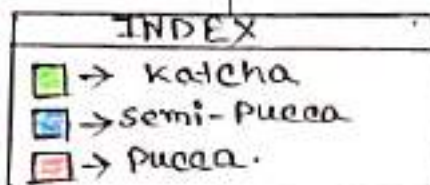 INDEX
→ Katcha
→ semi-Pucca
→ Pucca.